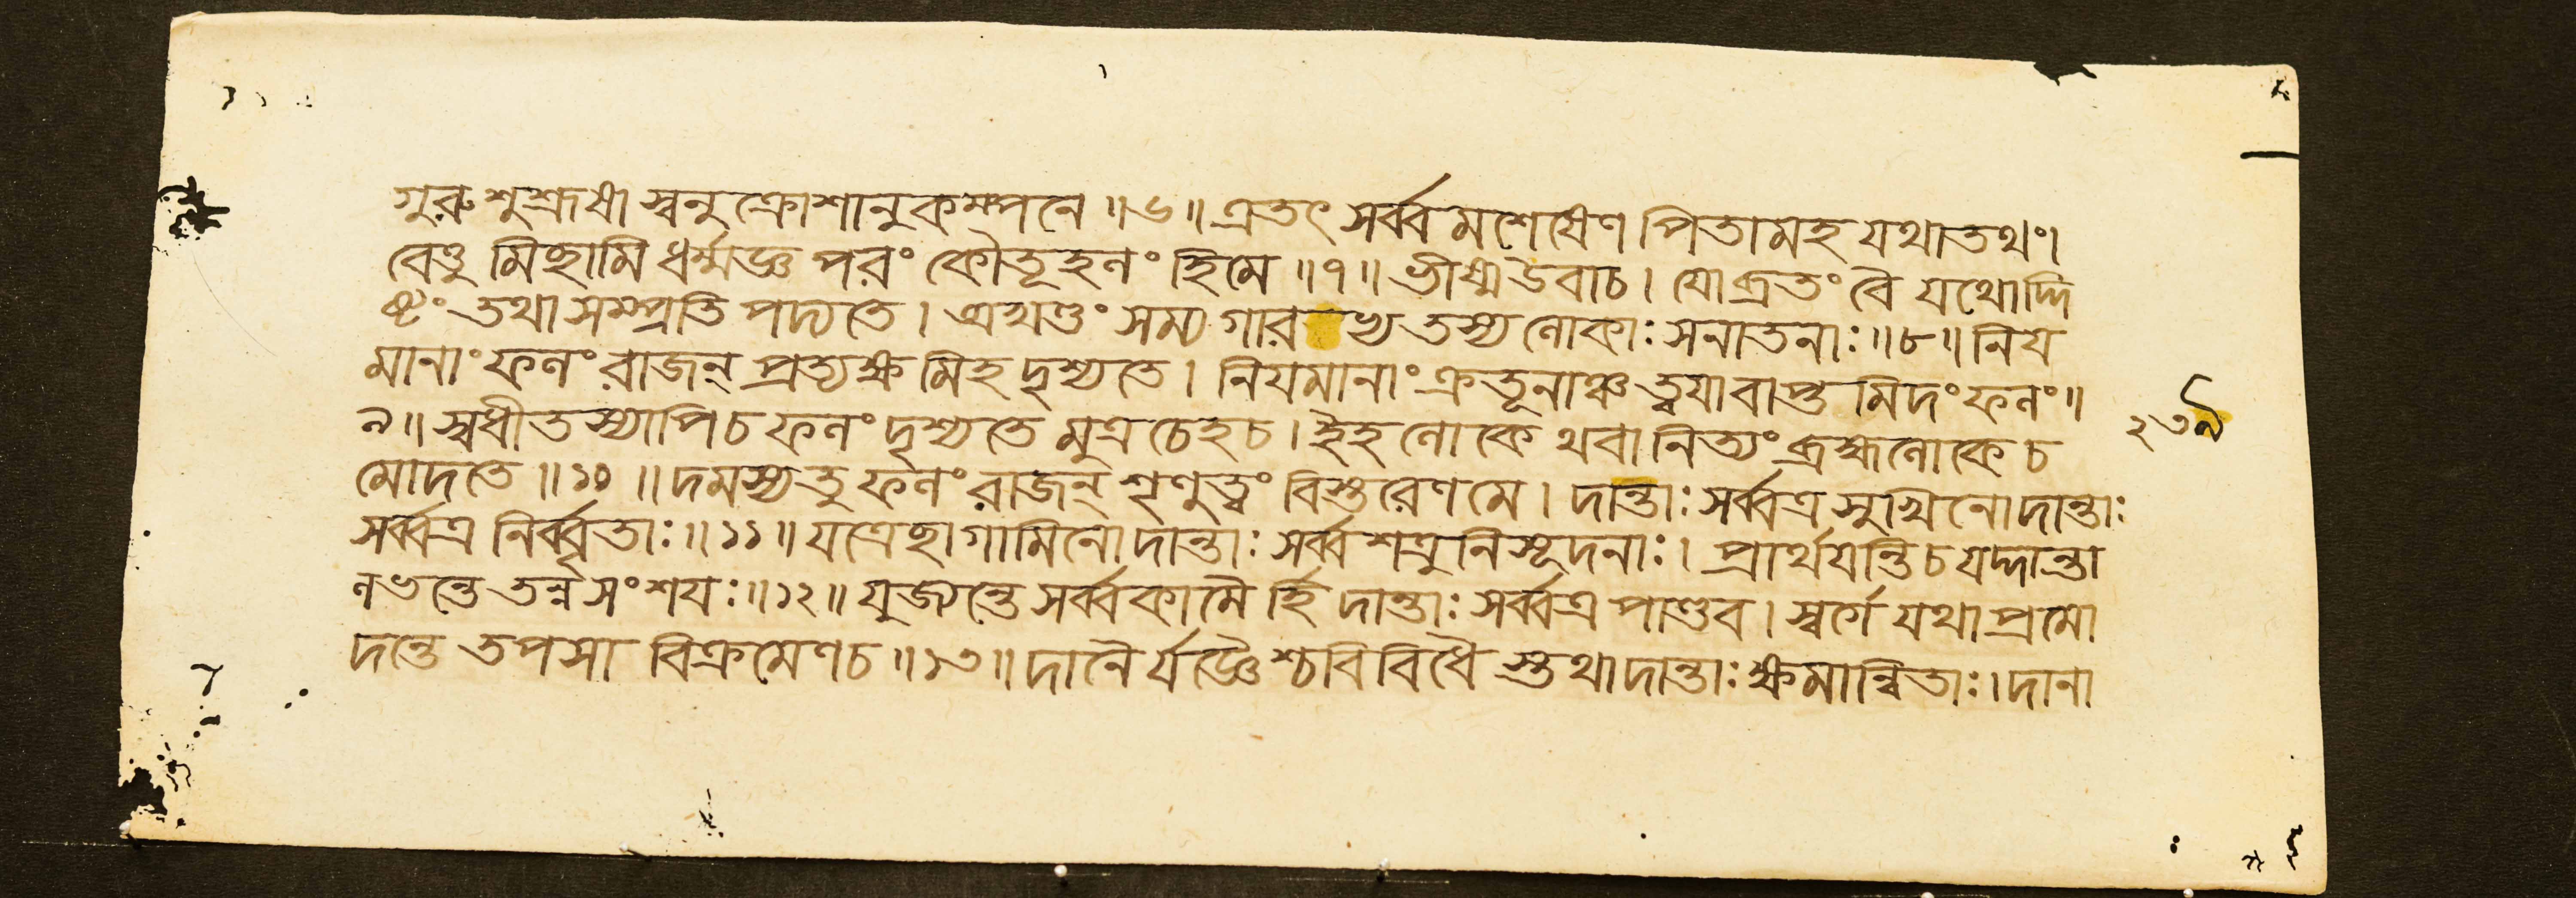 গুরুশুশ্রূষাস্বনুক্রোশানুকম্পনে॥৬॥এতৎ সর্ব্বমশেষেণ পিতামহ যথাতথং।
বেত্তুমিচ্ছামি ধর্ম্মজ্ঞ পরং কৌতূহলং হি মে॥৭॥ভীষ্ম উবাচ। যো ব্রতং বৈ যথোদ্দি
ষ্টং তথা সম্প্রতিপদ্যতে। অখণ্ডং সম্যগারভ্য তস্য লোকাঃ সনাতনাঃ॥৮॥নিয
মানাং ফলং রাজন্ প্রত্যক্ষমিহ দৃশ্যতে। নিযমানাং ক্রতূনাঞ্চ ত্বযাবাপ্তমিদং ফলং॥
৯॥স্বধীতস্যাপি চ ফলং দৃশ্যতে মুত্র চেহ চ। ইহলোকে থবা নিত্যং ব্রহ্মলোকে চ
মোদতে॥১০॥দমস্য তু ফলং রাজন্ শৃণু ত্বং বিস্তরেণ মে। দান্তাঃ সর্ব্বত্র সুখিনো দান্তাঃ
সর্ব্বত্র নির্ব্বৃতাঃ॥১১॥যত্রেচ্ছাগামিনো দান্তাঃ সর্ব্বশত্রুনিসূদনাঃ। প্রার্থযন্তি চ যদ্দান্তা
লভন্তে তন্ন সংশযঃ॥১২॥যুজ্যন্তে সর্ব্বকামৈর্হি দান্তাঃ সর্ব্বত্র পাণ্ডব। স্বর্গে যথা প্রমো
দন্তে তপসা বিক্রমেণ চ॥১৩॥দানৈর্যজ্ঞৈশ্চ বিবিধৈস্তথা দান্তাঃ ক্ষমান্বিতাঃ। দানা